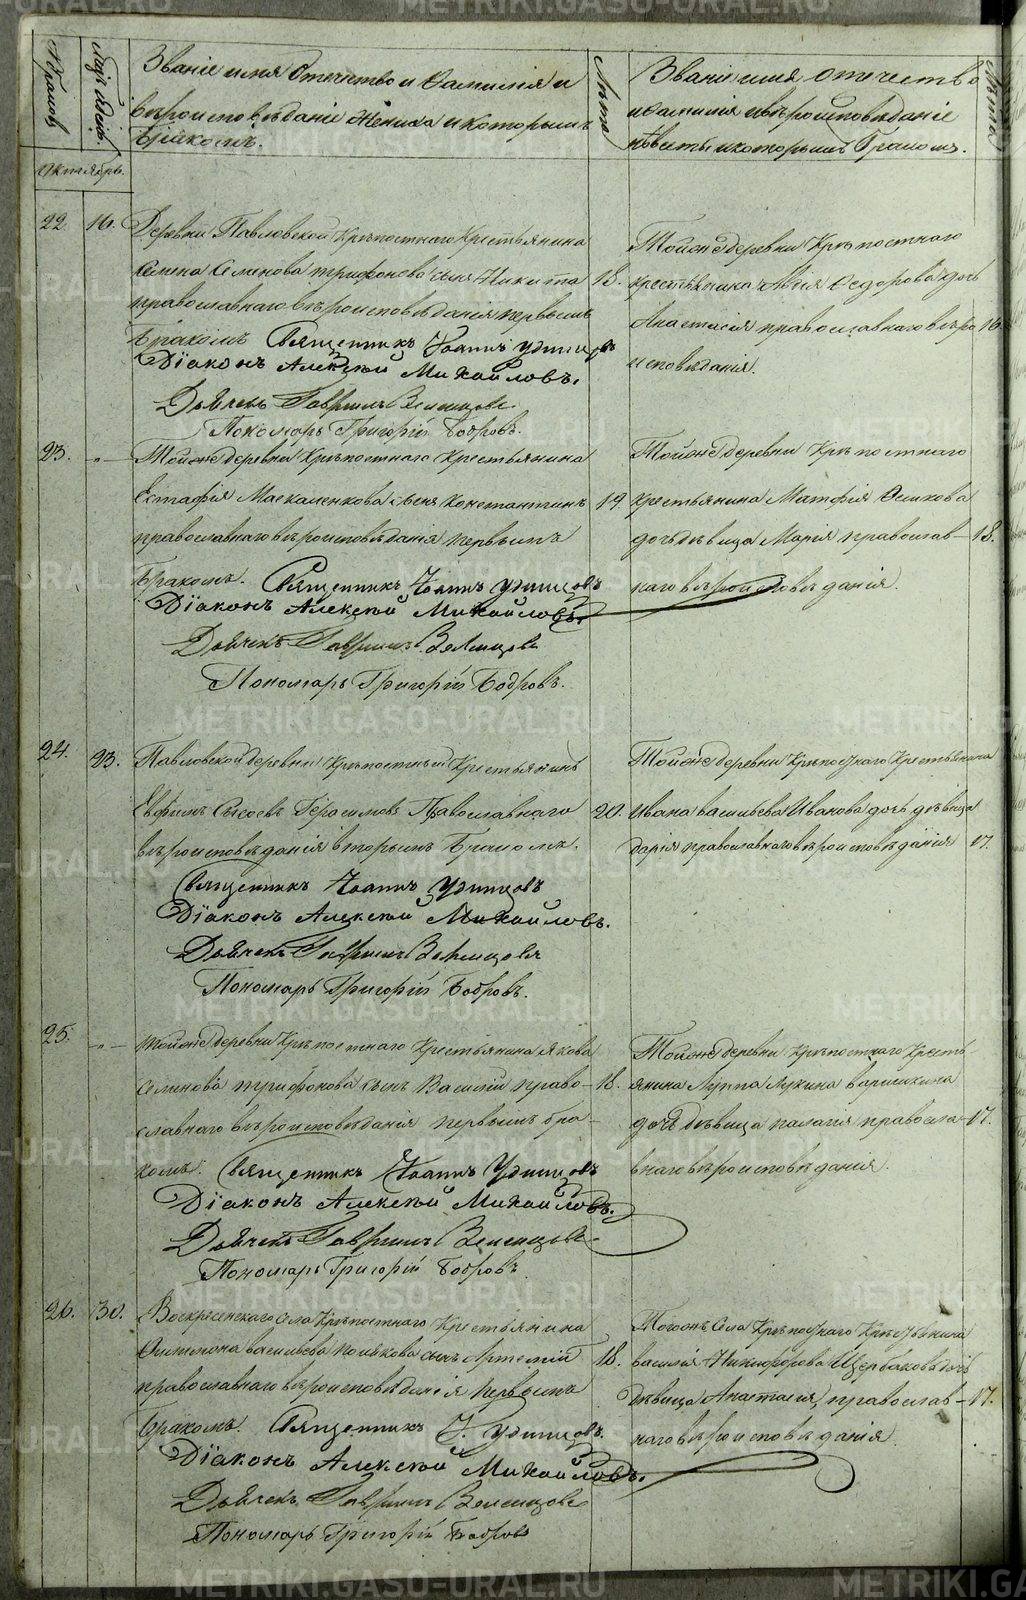 METRIKI.GASO-URAL.RU
Браковъ
Мѣсяцъ и день.
Званіе имя Отечество и Фамилія и
вѣроисповѣданіе Жениха и которымъ
Бракомъ.
Лѣта
Званіе имя отечество
и фамилія и вѣроисповѣданіе
Невѣсты и которымъ Бракомъ.
Лѣта
Октябрь.
22. 16.
Деревни Павловской Крѣпостнаго Крестьянина
Семена Семенова Трифонова сынъ Никита
18.
православнаго вѣроисповѣданія первымъ
Бракомъ Священникъ Іоаннъ Удинцовъ
Діаконъ Алексѣй Михайловъ.
Дьячекъ Гавріилъ
Пономарь Григорій Бобровъ.
Тойже деревни Крѣпостнаго
крестьянина Ѳедорова дочь
Анастасія православнаго вѣро
16.
исповѣданія.
23. -"-
Тойже деревни Крѣпостнаго Крестьянина
Естафія Маскаленкова сынъ Константинъ
19.
православнаго вѣроисповѣданія первымъ
Бракомъ. Священникъ Іоаннъ Удинцовъ
Діаконъ Алексѣй Михайловъ.
Дьячекъ Гавріилъ
Пономарь Григорій Бобровъ.
Тойже деревни Крѣпостнаго
крестьянина Матфія
дочь дѣвица Марія православ-
18.
наго вѣроисповѣданія.
24. 23.
Павловской деревни Крѣпостный Крестьянинъ
Евфимъ Сысоевъ Герасимовъ Православнаго
20.
вѣроисповѣданія вторымъ Бракомъ.
Священникъ Іоаннъ Удинцовъ
Діаконъ Алексѣй Михайловъ.
Дьячекъ Гавріилъ
Пономарь Григорій Бобровъ.
Тойже деревни Крѣпостнаго Крестьянина
Ивана Васильева Иванова дочь дѣвица
Дарія православнаго вѣроисповѣданія
17.
25. -"-
Тойже деревни Крѣпостнаго Крестьянина Якова
Семенова Трифонова сынъ Василій право-
18.
славнаго вѣроисповѣданія первымъ бра-
комъ. Священникъ Іоаннъ Удинцовъ
Діаконъ Алексѣй Михайловъ.
Дьячекъ Гавріилъ
Пономарь Григорій Бобровъ
Тойже деревни Крѣпостнаго Кресть-
янина Луппа Лукина
дочь дѣвица Палагія правосла-
17.
внаго вѣроисповѣданія.
26. 30.
Воскресенскаго села Крѣпостнаго Крестьянина
Филимона Васильева Полякова сынъ Артемій
18.
православнаго вѣроисповѣданія первымъ
Бракомъ. Священникъ І. Удинцовъ.
Діаконъ Алексѣй Михайловъ.
Дьячекъ Гавріилъ
Пономарь Григорій Бобровъ
Тогожъ Села Крѣпостнаго Крестьянина
Василія Никифорова Щербакова дочь
дѣвица Анастасія, православ-
17.
наго вѣроисповѣданія